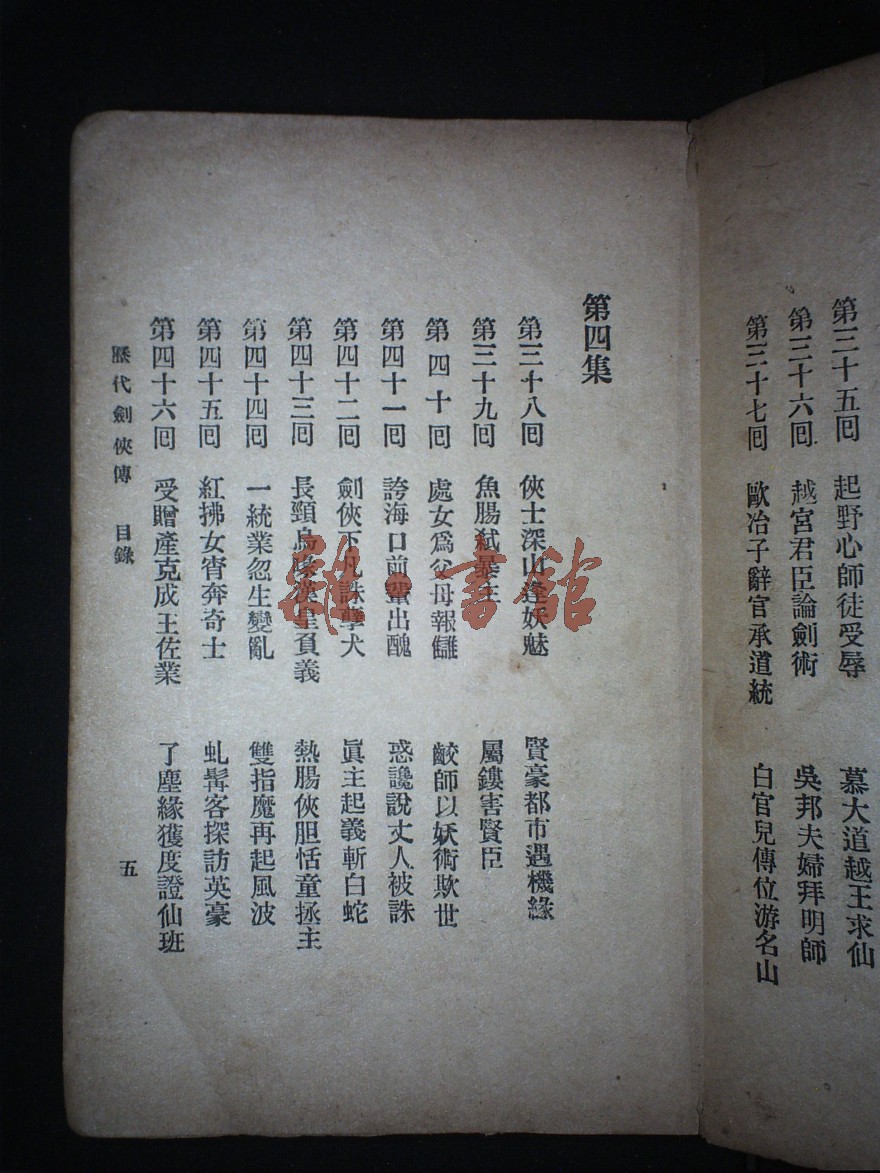 第三十五囘　起野心師徒受辱　慕大道越王求仙
第三十六囘　越宮君臣論劍術　吳邦夫婦拜明師
第三十七囘　歐冶子辭官承道統　白官兒傳位游名山
第四集
第三十八囘　俠士深山逢妖魅　賢豪都市遇機緣
第三十九囘　魚腸弑暴主　屬鏤害賢臣
第四十囘　處女爲父母報讎　鮫師以妖術欺世
第四十一囘　誇海口前輩出醜　惑讒說丈人被誅
第四十二囘　劍俠下凡誅孽犬　眞主起義斬白蛇
第四十三囘　長頸鳥喙漢皇負義　熱腸俠胆恬童拯主
第四十四囘　一統業忽生變亂　雙指魔再起風波
第四十五囘　紅拂女宵奔奇士　虬髯客探訪英豪
第四十六囘　受贈產克成王佐業　了塵緣獲度證仙班
歷代劍俠傳　目錄　五
雜·書館